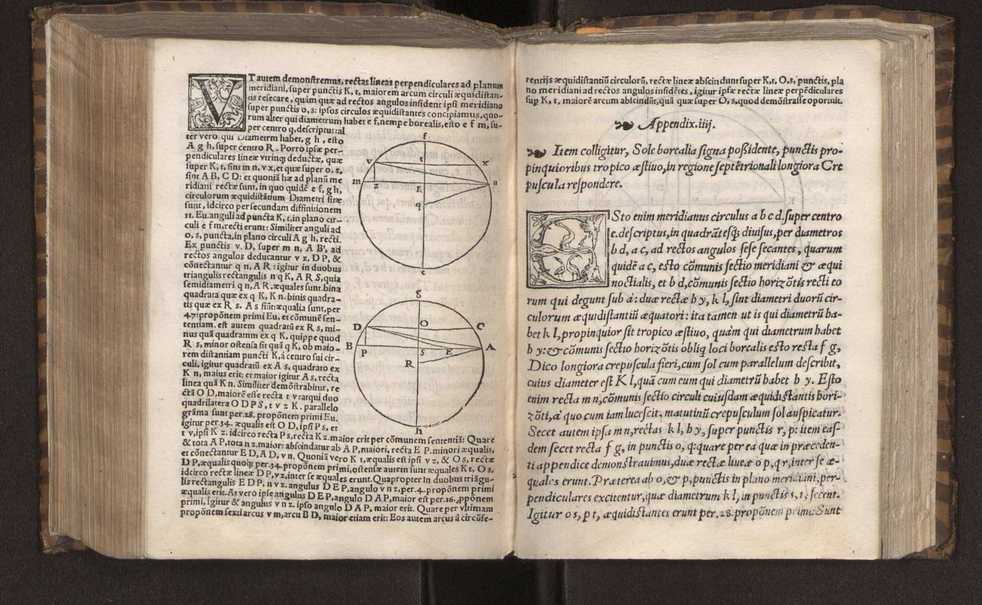 VT autem demonstremus, rectas lineas perpendiculares ad planum
meridiani, super punctis K, t, maiorem arcum circuli æquidistan-
tis resecare, quàm quæ ad rectos angulos insident ipsi meridiano
super punctis o, s: ipsos circulos æquidistantes concipiamus, quo-
rum alter qui diametrum habet e f, nempe borealis, esto e f m, su-
per centro q, descriptus: al
ter verò qui Diametrm habet, g h, esto
A g h, super centro R. Porro ipsæ per-
pendiculares lineæ vtrinq; deductæ, quæ
super K, t, sint m n, v x, et quæ super o, s,
sint A B, C D: et quoniã hæ ad planũ me
ridiani rectæ sunt, in quo quidē e f, g h,
circulorum æquidistãtium Diametri sitæ
sunt, idcirco per secundam diffinitionem
11. Eu. anguli ad puncta K, t, in plano cir-
culi e f m, recti erunt: Similiter anguli ad
o, s, puncta, in plano circuli A g h, recti.
Ex punctis v. D, super m n, A B, ad
rectos angulos deducantur v z, D P, &
cõnectantur q n, A R: igitur in duobus
triangulis rectangulis n q K, A R S, quia
semidiametri q n, A R, æquales sunt. bina
quadrata quæ ex q K, K n. binis quadra-
tis quæ ex R s. A s sunt æqualia sunt, per
47. proponem primi Eu. et cõmunē sen-
tentiam. est autem quadratũ ex R s, mi-
nus quã quadratum ex q K, quippe quod
R s, minor ostensa sit quã q K, ob maio-
rem distantiam puncti K, à centro sui cir-
culi, igitur quadratũ ex A s, quadrato ex
K n, maius erit: et maior igitur A s, recta
linea quã K n. Similiter demõstrabitur, re
ctã O D, maiorē esse recta t v: atqui duo
quadrilatera O D P S, t v z K. parallelo
grãma sunt per .28. proponem primi Eu,
igitur per .34. æqualis est O D, ipsi P s, et
t v, ipsi K z. idcirco recta P s, recta K z. maior erit per cõmunem sententiã: Quare
& tota A P, tota n z. maior: abscindatur ab A P, maiori, recta E P. minori æqualis,
et cõnectantur E D, A D, v n. Quoniã vero K t, æqualis est ipsi v z, & O s, rectæ
D P, æqualis quoq; per .34. proponem primi, ostensæ autem sunt æquales K t, O s,
idcirco rectæ lineæ D P, v z, inter se æquales erunt. Quapropter in duobus triãgu-
lis rectangulis E D P, n v z. angulus D E P, angulo v n z, per .4. proponem primi
æqualis erit. As vero ipse angulus D E P, angulo D A P, maior est per .16. pponem
primi, igitur & angulus v n z. ipso angulo D A P, maior erit. Quare per vltimam
proponem sexti arcus v m, arcu B D, maior etiam erit: Eos autem arcus à circũfe-
f
v
t
x
m
z
n
q
e
g
D
O
C
B
P
S
E
A
R
h
rentijs æquidistantiũ circulorũ, rectæ lineæ abscindunt super K, t. O, s, punctis, pla
no meridiani ad rectos angulos insidētes, igitur ipsæ rectæ lineæ perpēdiculares
sup K, t, maiorē arcum abscindũt, quã quæ super O, s, quod demõstrasse oporuit.
Appendix. iiij.
Item colligitur, Sole borealia signa poßidente, punctis pro-
pinquioribus tropico æstiuo, in regione septētrionali longiora Cre
puscula respondere.
ESto enim meridianus circulus a b c d. super centro
e. descriptus, in quadrãtesq́; diuisus, per diametros
b d, a c, ad rectos angulos sese secantes, quarum
quidē a c, esto cõmunis sectio meridiani & æqui
noctialis, et b d, cõmunis sectio horizõtis recti eo
rum qui degunt sub a: duæ rectæ b y, k l, sint diametri duorũ cir-
culorum æquidistantiũ æquatori: ita tamen ut is qui diametrũ ha-
bet k l, propinquior sit tropico æstiuo, quàm qui diametrum habet
b y: & cõmunis sectio horizõtis obliq; loci borealis esto recta f g,
Dico longiora crepuscula fieri, cum sol eum parallelum describit,
cuius diameter est K l, quã cum eum qui diametrũ habet b y. Esto
enim recta m n, cõmunis sectio circuli cuiusdam æquidistantis hori-
zõti, à quo cum iam lucescit, matutinũ crepusculum sol auspicatur.
Secet autem ipsa m n, rectas k l, b y, super punctis r, p: item eas-
dem secet recta f g, in punctis o, q: quare per ea quæ in præceden-
ti appendice demonstrauimus, duæ rectæ lineæ o p, q r, inter se æ-
quales erunt. Præterea ab o, & p, punctis in plano meridiani, per-
pendiculares excitentur, quæ diametrum k l, in punctis s, t, secent.
Igitur o s, p t, æquidistantes erunt per .28. propõnem primi: Sunt